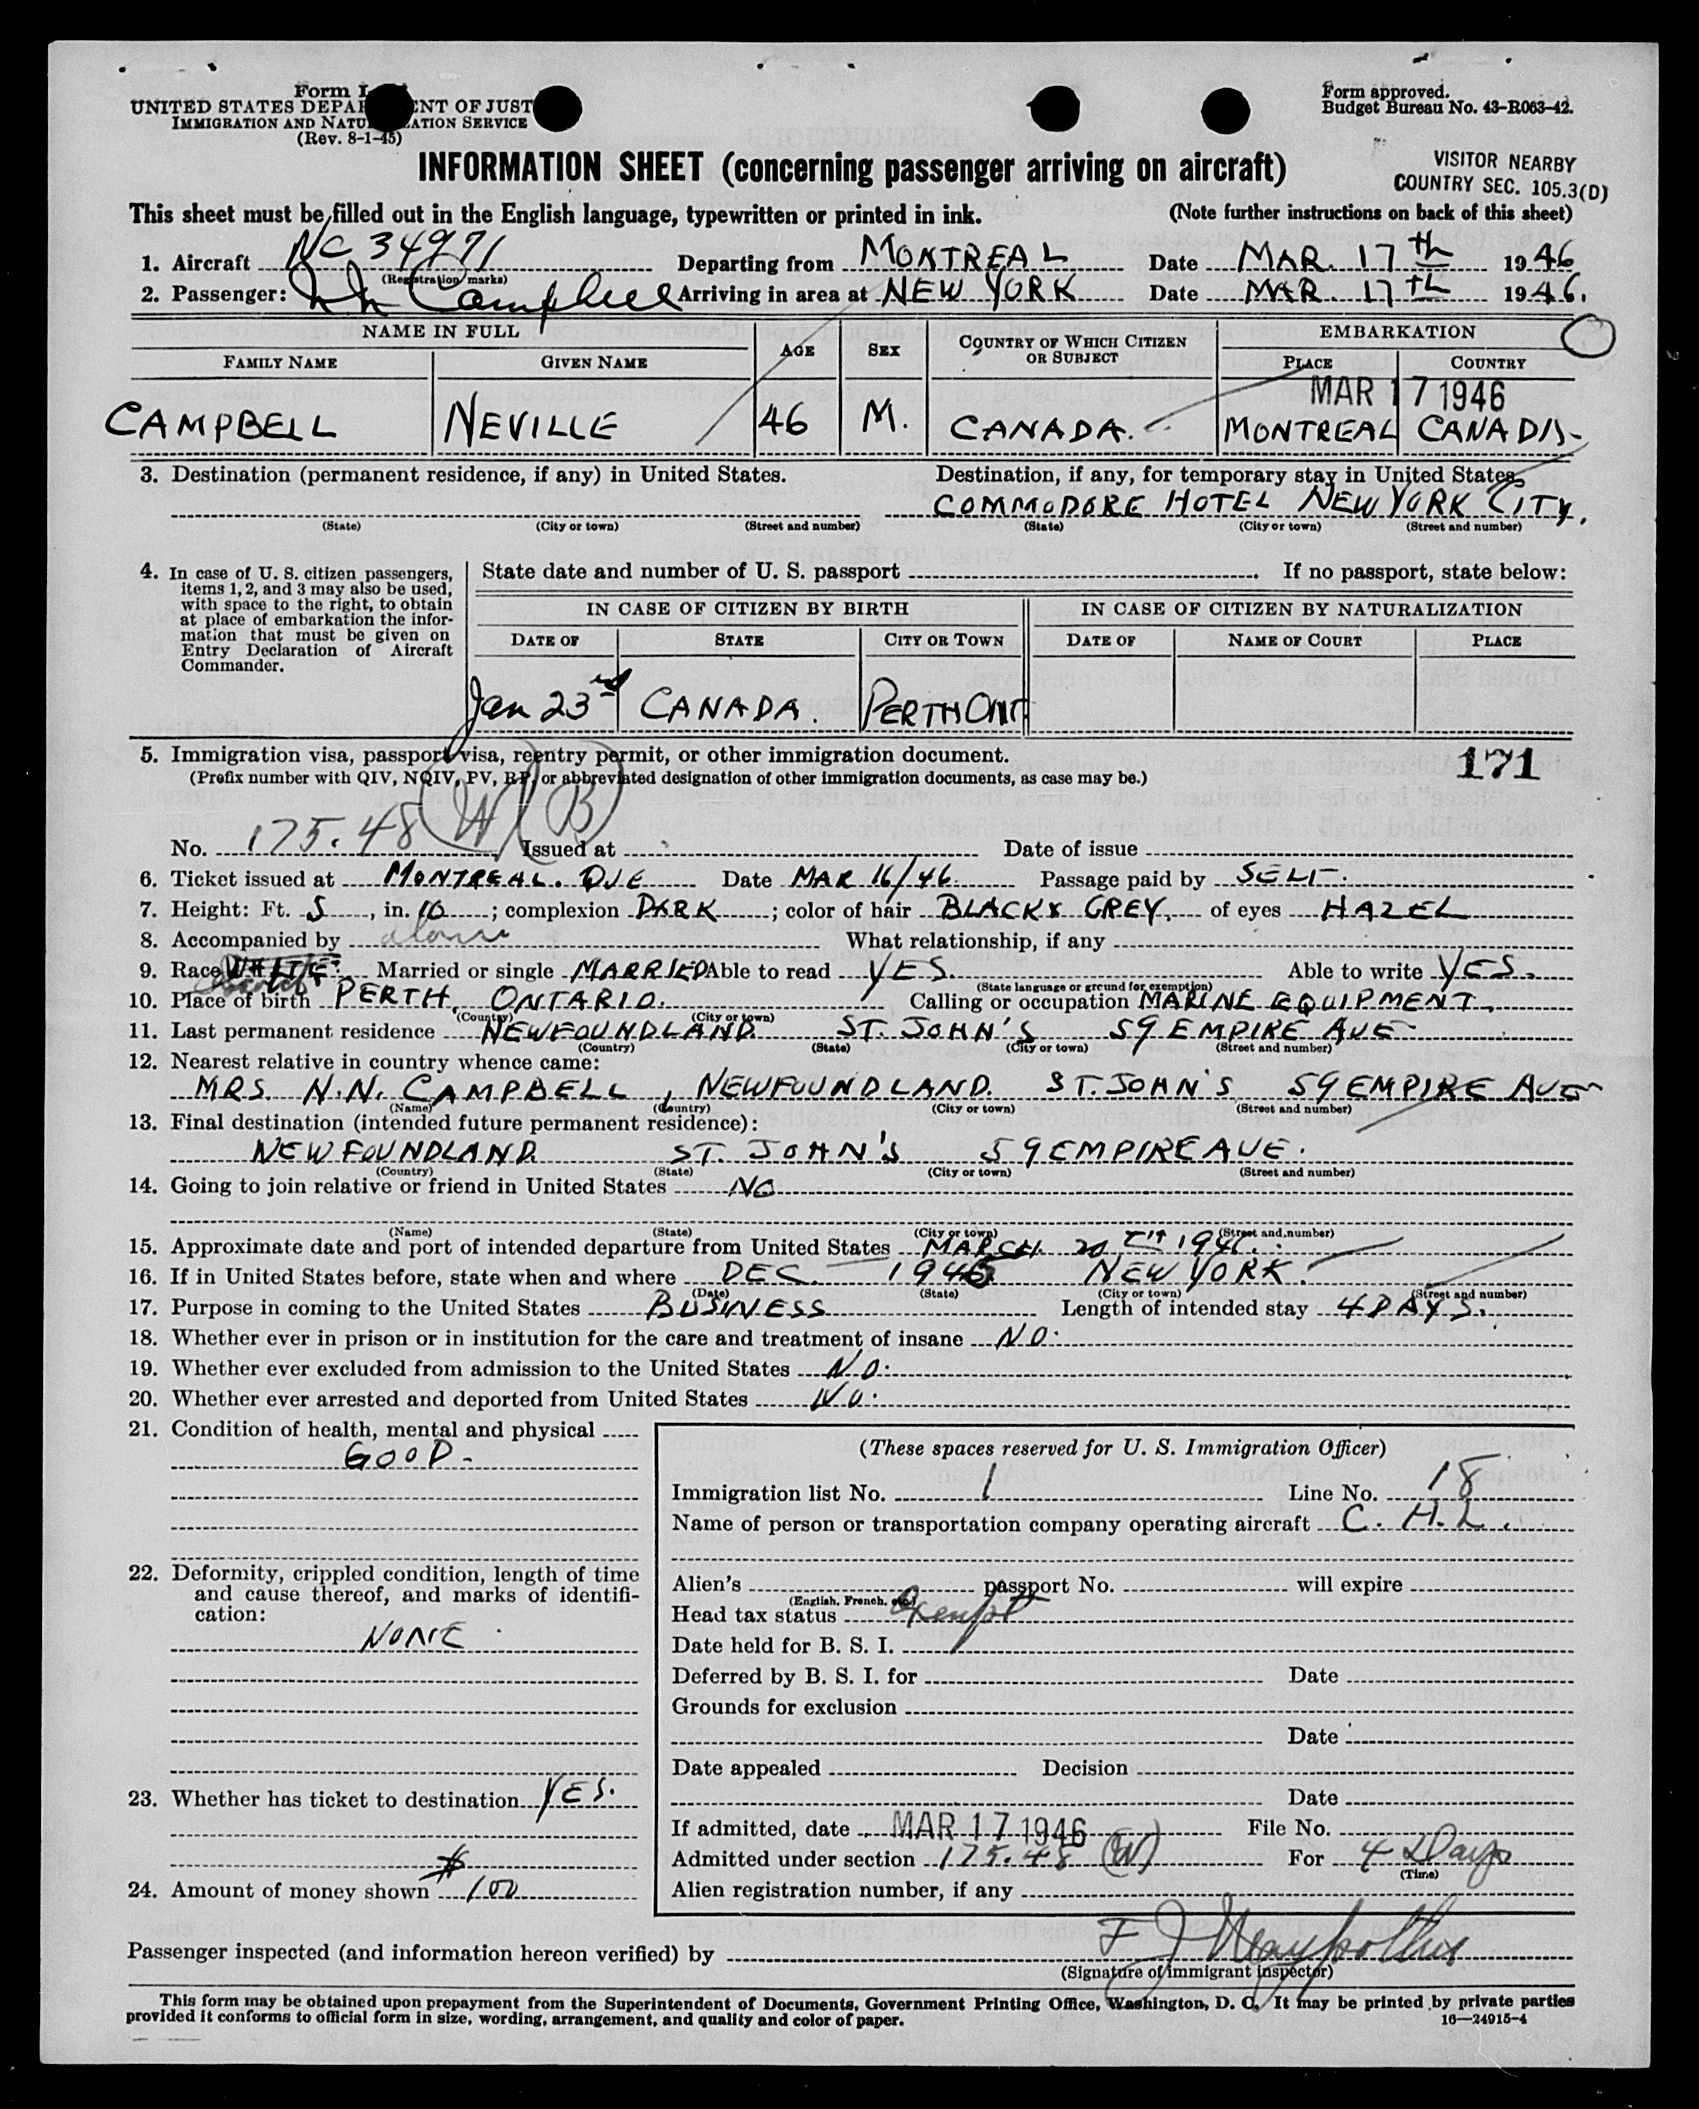 Form I
UNITED STATES DEPAR ENT OF JUST
IMMIGRATION AND NATU ATION SERVICE
(Rev. 8-1-45)
Form approved.
Budget Bureau No. 43-R063-42.
INFORMATION SHEET (concerning passenger arriving on aircraft)
VISITOR NEARBY
COUNTRY SEC. 105.3(D)
This sheet must be filled out in the English language, typewritten or printed in ink.
(Note further instructions on back of this sheet)
1. Aircraft NC 34971 Departing from MONTREAL Date MAR. 17th 1946
(Registration marks)
2. Passenger: Campbell Arriving in area at NEW YORK Date MAR. 17th 1946.
NAME IN FULL AGE SEX COUNTRY OF WHICH CITIZEN OR SUBJECT EMBARKATION
FAMILY NAME GIVEN NAME PLACE COUNTRY
MAR 17 1946
CAMPBELL NEVILLE 46 M. CANADA. MONTREAL CANADA
3. Destination (permanent residence, if any) in United States. Destination, if any, for temporary stay in United States,
COMMODORE HOTEL NEW YORK CITY.
(State) (City or town) (Street and number) (State) (City or town) (Street and number)
4. In case of U. S. citizen passengers, items 1, 2, and 3 may also be used, with space to the right, to obtain at place of embarkation the information that must be given on Entry Declaration of Aircraft Commander.
State date and number of U. S. passport . If no passport, state below:
IN CASE OF CITIZEN BY BIRTH IN CASE OF CITIZEN BY NATURALIZATION
DATE OF STATE CITY OR TOWN DATE OF NAME OF COURT PLACE
Jan 23rd CANADA. PERTH ONT.
5. Immigration visa, passport visa, reentry permit, or other immigration document.
171
(Prefix number with QIV, NQIV, PV, RP, or abbreviated designation of other immigration documents, as case may be.)
No. 175.48 (W) (B) Issued at Date of issue
6. Ticket issued at MONTREAL. QUE Date MAR 16/46 Passage paid by SELF.
7. Height: Ft. 5, in. 10; complexion DARK; color of hair BLACK & GREY. of eyes HAZEL
8. Accompanied by alone What relationship, if any
9. Race WHITE Married or single MARRIED Able to read YES. Able to write YES.
(State language or ground for exemption)
10. Place of birth PERTH, ONTARIO. Calling or occupation MARINE EQUIPMENT.
(Country) (City or town)
11. Last permanent residence NEWFOUNDLAND ST. JOHN'S 59 EMPIRE AVE
(Country) (State) (City or town) (Street and number)
12. Nearest relative in country whence came:
MRS. N.N. CAMPBELL, NEWFOUNDLAND. ST. JOHN'S 59 EMPIRE AVE
(Name) (Country) (City or town) (Street and number)
13. Final destination (intended future permanent residence):
NEWFOUNDLAND ST. JOHN'S 59 EMPIRE AVE.
(Country) (State) (City or town) (Street and number)
14. Going to join relative or friend in United States NO
(Name) (State) (City or town) (Street and number)
15. Approximate date and port of intended departure from United States MARCH 20TH 194
16. If in United States before, state when and where DEC. 1945 NEW YORK.
(Date) (State) (City or town) (Street and number)
17. Purpose in coming to the United States BUSINESS Length of intended stay 4 DAYS.
18. Whether ever in prison or in institution for the care and treatment of insane NO.
19. Whether ever excluded from admission to the United States NO.
20. Whether ever arrested and deported from United States NO.
21. Condition of health, mental and physical
GOOD.
22. Deformity, crippled condition, length of time
and cause thereof, and marks of identification:
NONE
23. Whether has ticket to destination YES.
24. Amount of money shown $100
(These spaces reserved for U. S. Immigration Officer)
Immigration list No. 1 Line No. 18
Name of person or transportation company operating aircraft C. H. L.
Alien's passport No. will expire
(English, French, etc.)
Head tax status Exempt
Date held for B. S. I.
Deferred by B. S. I. for Date
Grounds for exclusion
Date
Date appealed Decision
Date
If admitted, date MAR 17 1946 File No.
Admitted under section 175.48 (W) For 4 Days
(Time)
Alien registration number, if any
Passenger inspected (and information hereon verified) by F J
(Signature of immigrant inspector)
This form may be obtained upon prepayment from the Superintendent of Documents, Government Printing Office, Washington, D. C. It may be printed by private parties
provided it conforms to official form in size, wording, arrangement, and quality and color of paper.
16—24915-4